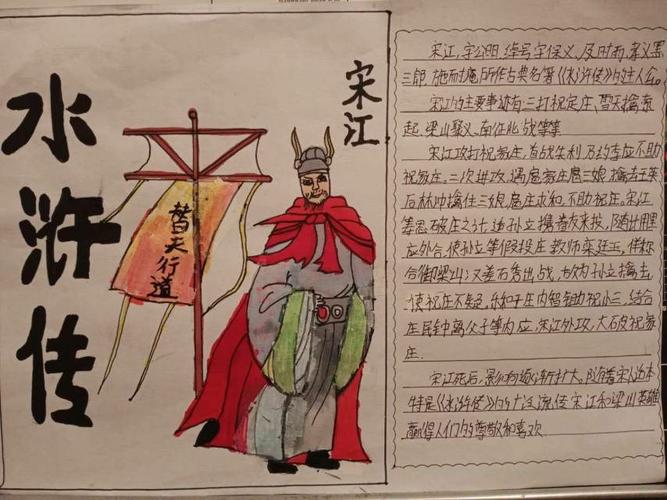 水浒传
替天行道
宋江
宋江,字公明,绰号呼保义,及时雨,孝义黑
三郎,施耐庵所作古典名著《水浒传》的主人公。
宋江的主要事迹有:三打祝家庄、
起、梁山聚义、南征北战等等
宋江攻打祝家庄,首战失利,及约李应不助
祝家庄。二次进攻,遇扈家庄扈三娘,擒去王英
后林冲擒住三娘,扈庄求和,不助祝庄。宋江
筹思破庄之计,适孙立携眷众来投,随计用里
应外合,使孙立等假投庄教师栾廷玉,佯称
合衔梁山;又差石秀出战,故为孙立擒去,
使祝庄不疑。乐和于庄内
庄民钟离父子等内应,宋江外攻,大破祝家
庄.
宋江死后,影响逐渐扩大。随着宋人话本
特是《水浒传》的广泛流传,宋江和梁山英雄
赢得人们的尊敬和喜欢